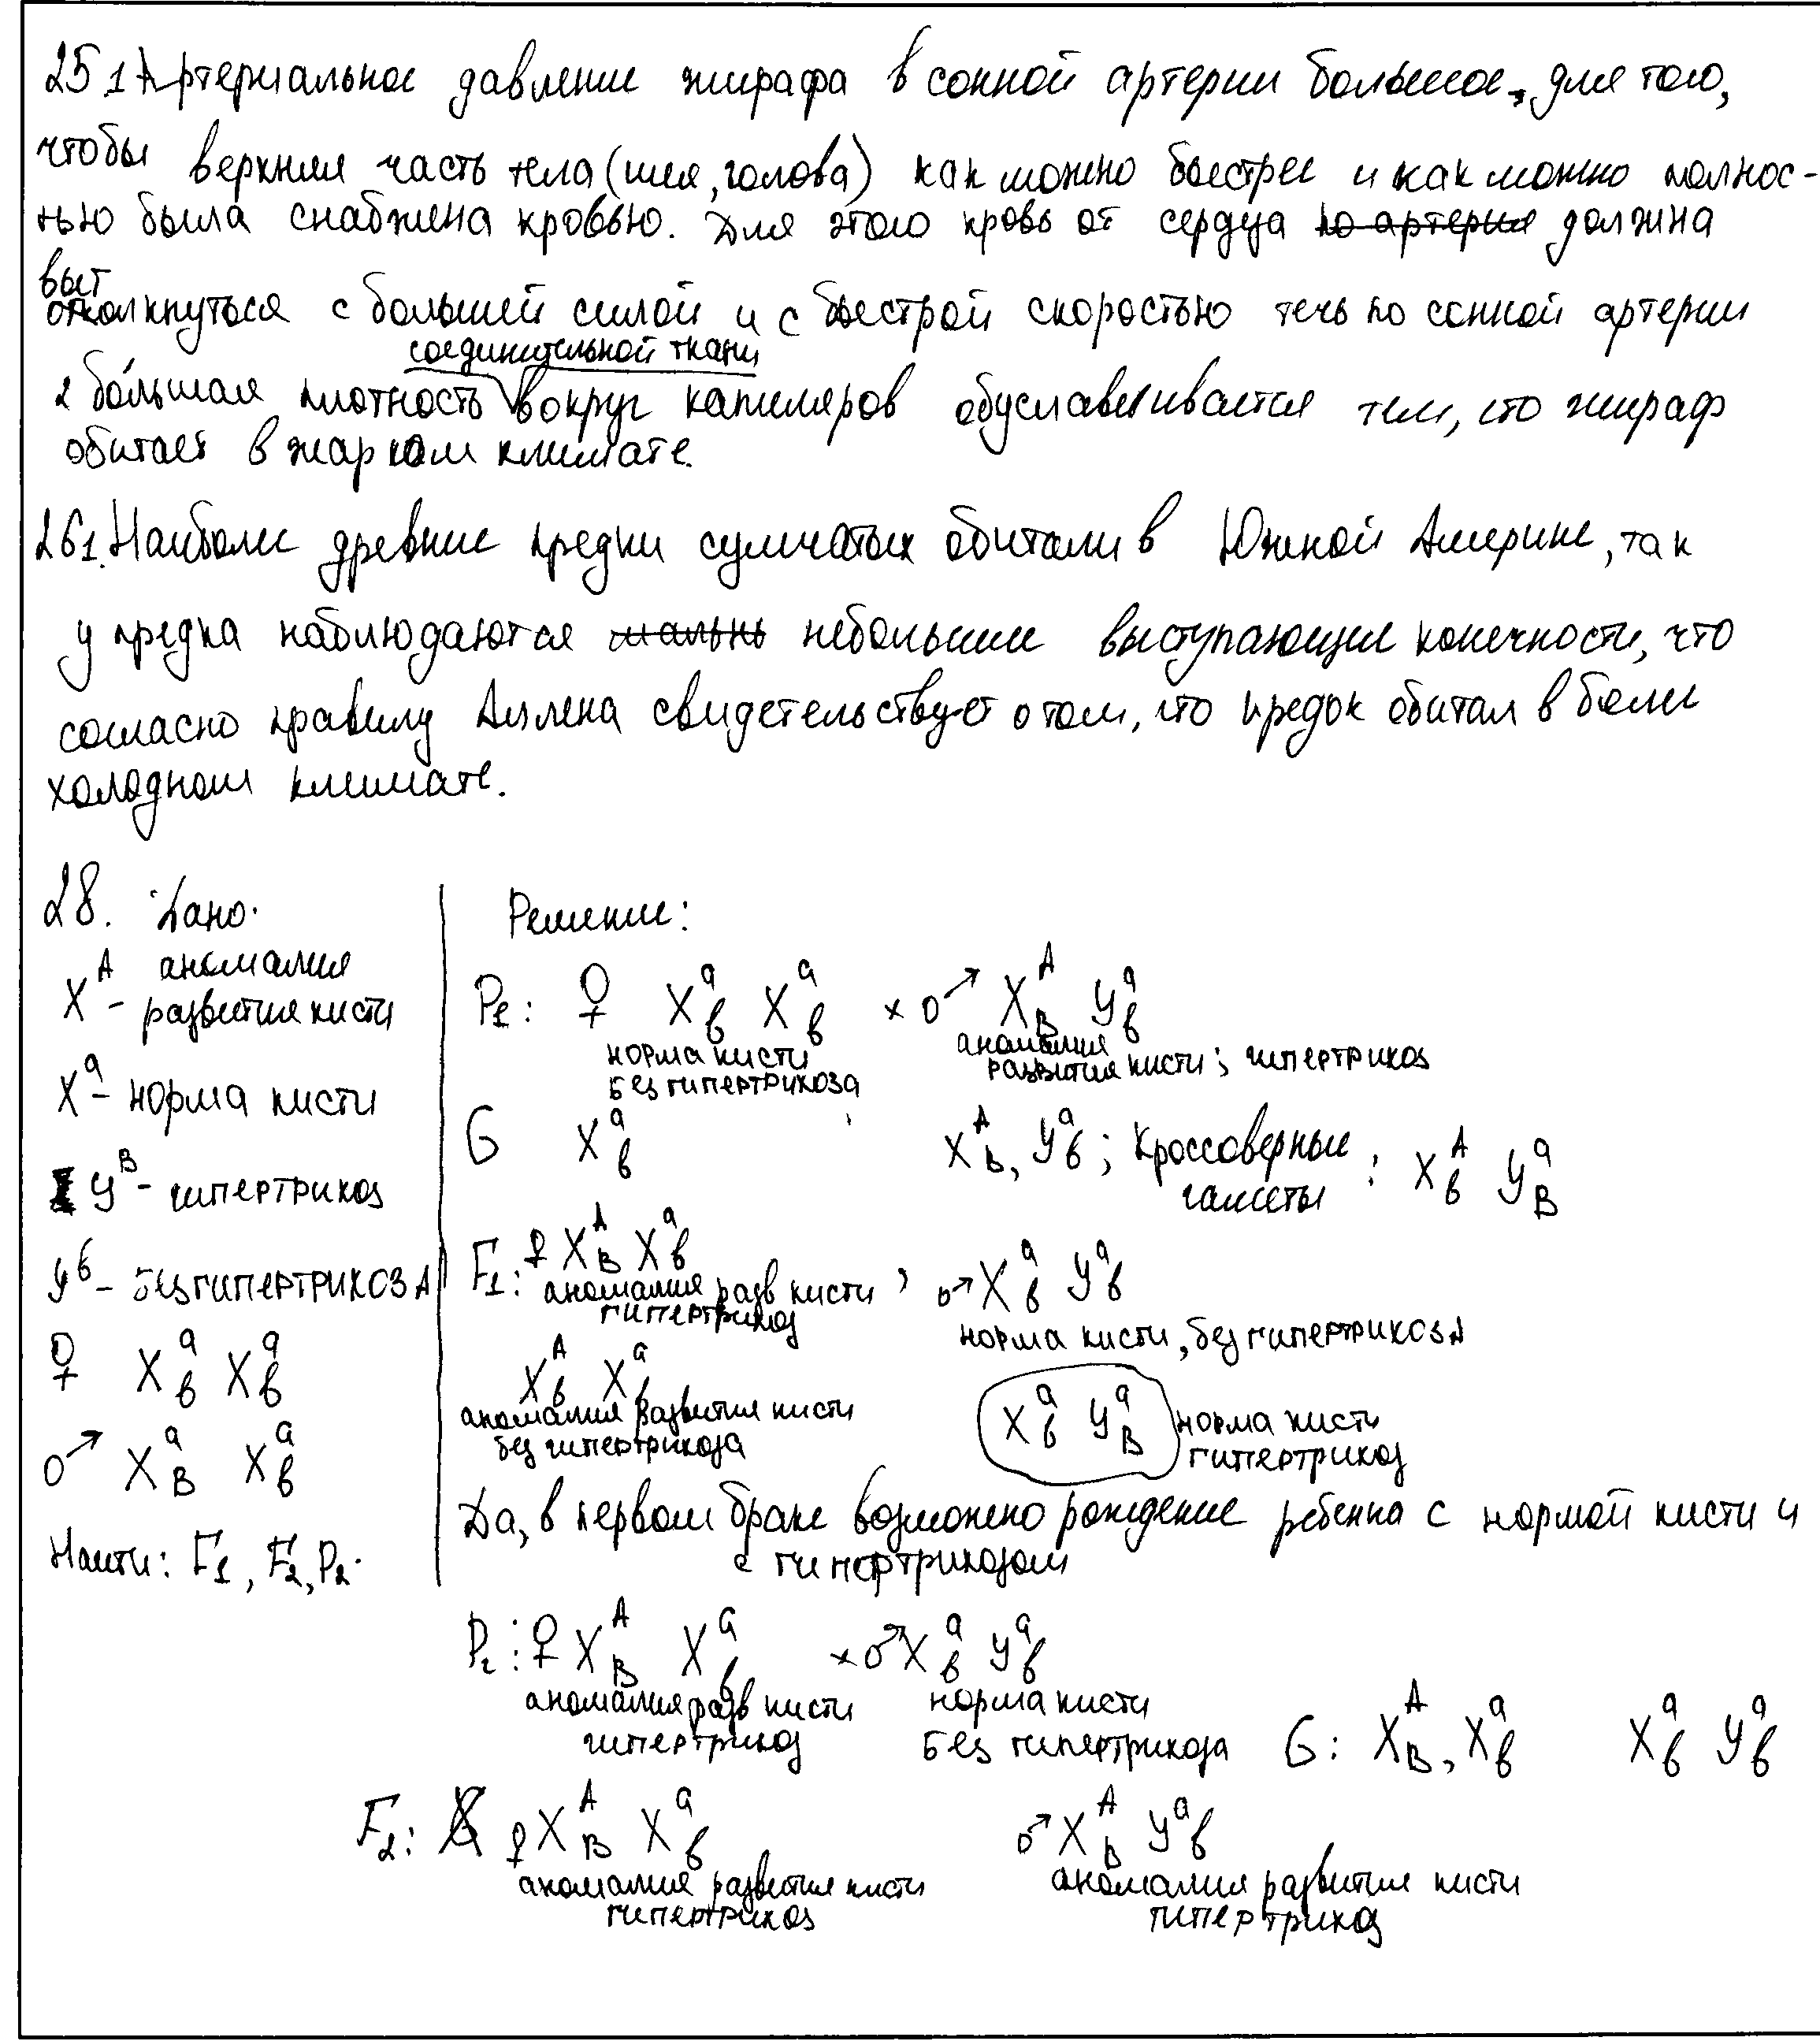 25.1 Артериальное давление жирафа в сонной артерии большое, для того,
чтобы верхняя часть тела (шея, голова) как можно быстрее и как можно полнос-
тью была снабжена кровью. Для этого кровь от сердца по артерия должна
выт
отолкнуться с большей силой и с быстрой скоростью течь по сонной артерии
соединительной ткани
2 бо́льшая плотность вокруг капиляров обуславливается тем, что жираф
обитает в жарком климате.
261. Наиболее древние предки сумчатых обитали в Южной Америке, так
у предка наблюдаются небольшие выступающие конечности, что
согласно правилу Аллена свидетельствует о том, что предок обитал в более
холодном климате.
28. Дано:
X^A - аномалия развития кисти
X^a - норма кисти
У^B - гипертрихоз
У^b - без гипертрихоза
♀ X^a_b X^a_b
♂ X^a_B X^a_b
Найти: F1, F2, P2.
Решение:
P1: ♀ X^a_b X^a_b × ♂ X^A_B У^a_b
норма кисти без гипертрихоза
аномалия развития кисти; гипертрихоз
G X^a_b X^A_B, У^a_b; Кроссоверные гаметы: X^A_b У^a_B
F1: ♀ X^A_B X^a_b, ♂ X^a_b У^a_b
аномалия разв кисти гипертрихоз
норма кисти, без гипертрихоза
X^A_b X^a_b X^a_b У^a_B
аномалия развития кисти без гипертрихоза
норма кисти гипертрихоз
Да, в первом браке возможено рождение ребенка с нормой кисти и
с гипертрихозом
P2: ♀ X^A_B X^a_b × ♂ X^a_b У^a_b
аномалия разв кисти гипертрихоз
норма кисти без гипертрихоза
G: X^A_B, X^a_b X^a_b У^a_b
F2: ♀ X^A_B X^a_b ♂ X^A_b У^a_b
аномалия развития кисти гипертрихоз
аномалия развития кисти гипертрихоз